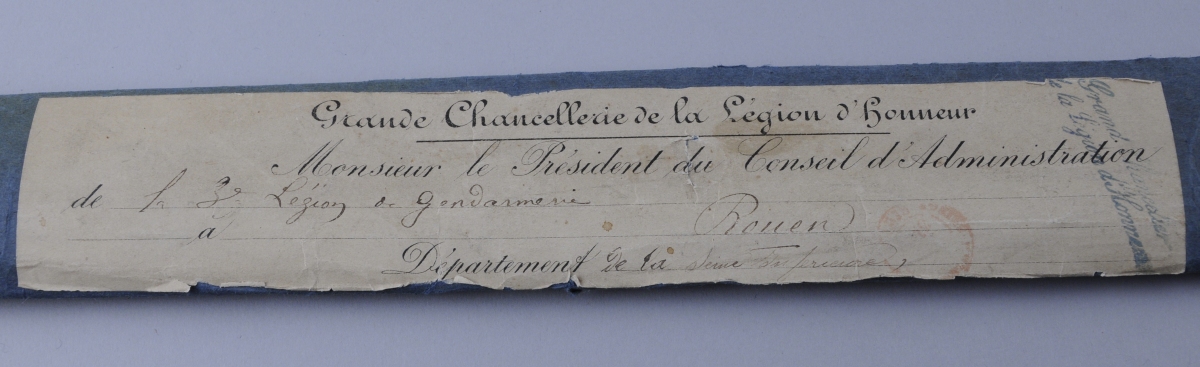 Grande Chancellerie de la Légion d'Honneur
Monsieur le Président du Conseil d'Administration
de la 3e Légion de Gendarmerie
à Rouen
Département de la Seine Inférieure
Grand Chancelier
de la Légion d'Honneur